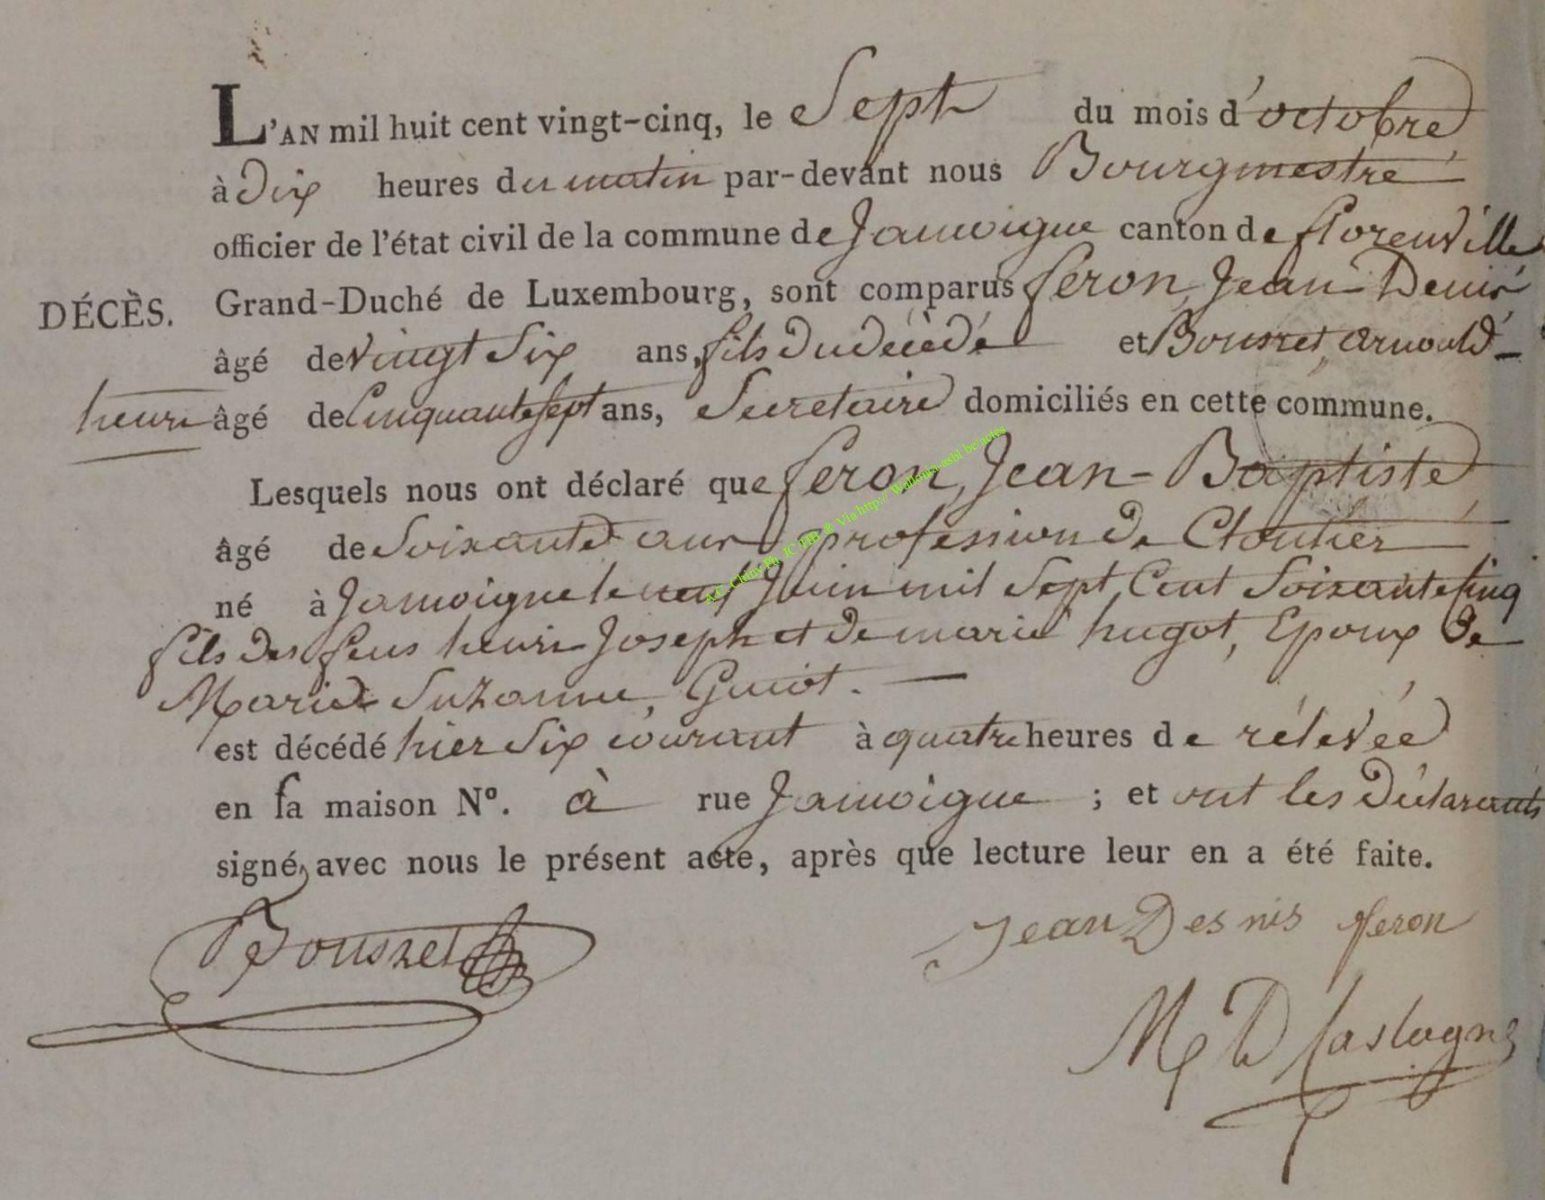 L'AN mil huit cent vingt-cinq, le Sept du mois d'octobre
à Dix heures du matin par-devant nous Bourgmestre
officier de l'état civil de la commune de Jamoigne canton de florenville
DÉCÈS. Grand-Duché de Luxembourg, sont comparus feron, Jean Denis
âgé de vingt Six ans, fils du décédé et Bousret, arnould
henri âgé de Cinquante sept ans, Secretaire domiciliés en cette commune.
Lesquels nous ont déclaré que feron, Jean-Baptiste
âgé de Soixante ans profession de Cloutier
né à Jamoigne le neuf Juin mil Sept Cent Soixante Cinq
fils des feus henri Joseph et de marie hugot, Epoux de
Marie Suzanne, Guiot.
est décédé hier Six courant à quatre heures de rélevée
en sa maison N°. à rue Jamoigne ; et ont les Déclarants
signé, avec nous le présent acte, après que lecture leur en a été faite.
Jean Desnis feron
Bousret
M D